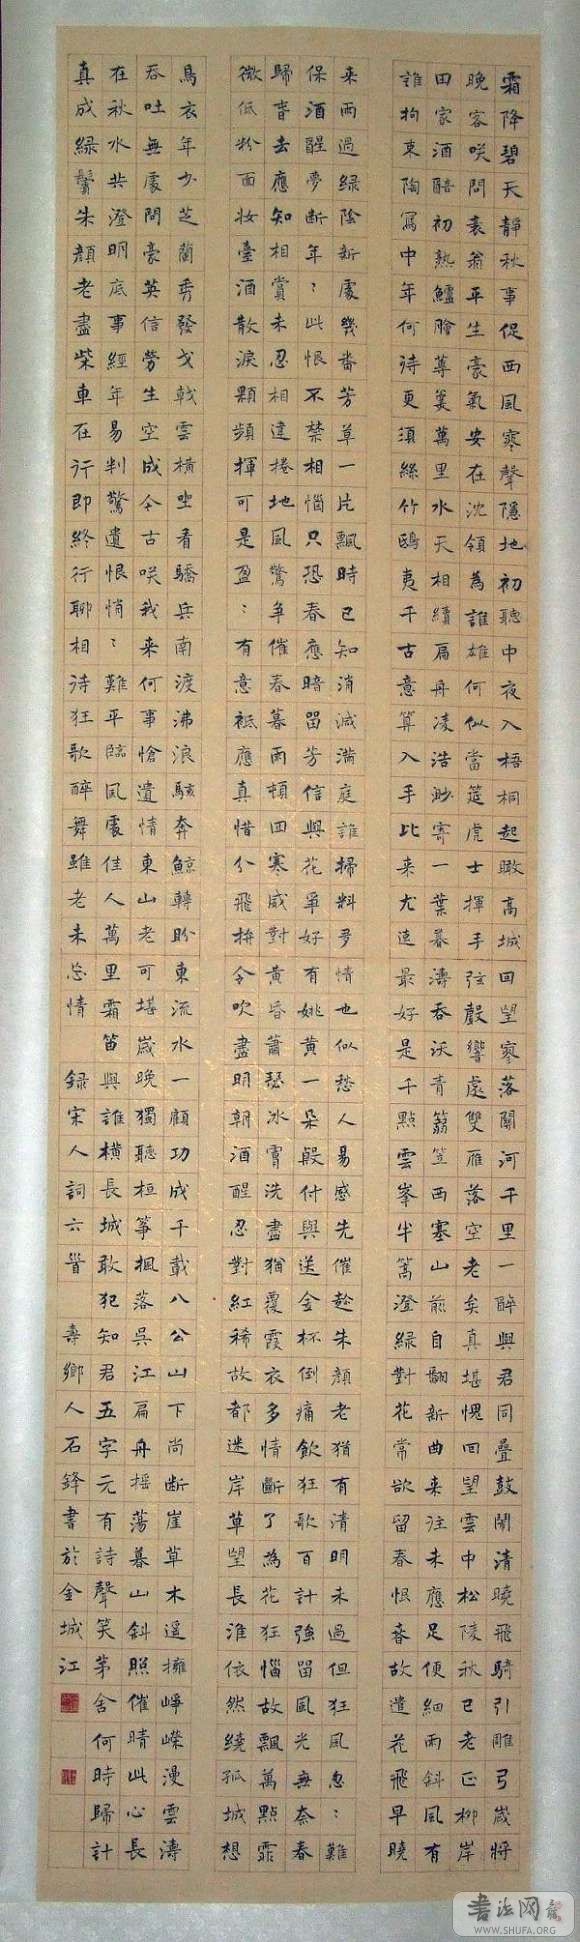 霜降碧天靜秋事促西風寒聲隱地初聽中夜入梧桐起瞰高城回望寥落關河千里一醉與君同疊鼓鬧清曉飛騎引雕弓歲將
晚客咲問衰翁平生豪氣安在沈領為誰雄何似當筵虎士揮手弦聲響處雙雁落空老矣真堪愧回望雲中松陵秋已老正柳岸
田家酒醅初熟鱸膾蓴羹萬里水天相續扁舟凌浩渺寄一葉暮濤吞沃青篛笠西塞山前自翻新曲来往未應足便細雨斜風有
誰拘束陶寫中年何待更須絲竹鴟夷千古意算入手比来尤速最好是千點雲峯半篙澄綠對花常欲留春恨春故遣花飛早曉
来雨過綠陰新處幾番芳草一片飄時已知消減滿庭誰掃料多情也似愁人易感先催趁朱顏老猶有清明未過但狂風怱〻難
保酒醒夢斷年〻此恨不禁相惱只恐春應暗留芳信與花爭好有姚黃一朵殷付與送金杯倒痛飲狂歌百計強留風光無奈春
歸春去應知相賞未忍相違捲地風驚爭催春暮雨頓回寒威對黃昏蕭瑟冰膚洗盡猶覆霞衣多情斷了為花狂惱故飄萬點霏
微低粉面妝臺酒散淚顆頻揮可是盈〻有意祗應真惜分飛拚令吹盡明朝酒醒忍對紅稀故都迷岸草望長淮依然繞孤城想
烏衣年少芝蘭秀發戈戟雲橫坐看驕兵南渡沸浪駭奔鯨轉盼東流水一顧功成千載八公山下尚斷崖草木遥擁崢嶸漫雲濤
吞吐無處問豪英信勞生空成今古咲我来何事愴遺情東山老可堪歲晚獨聽桓箏楓落吳江扁舟摇蕩暮山斜照催晴此心長
在秋水共澄明底事經年易判驚遺恨悄〻難平臨風處佳人萬里霜笛與誰橫長城敢犯知君五字元有詩聲笑茅舍何時歸計
真成綠鬢朱顏老盡柴車在行即終行聊相待狂歌醉舞雖老未忘情 録宋人詞六首 壽鄉人石鋒書於金城江
书法网
WWW.SHUFA.ORG